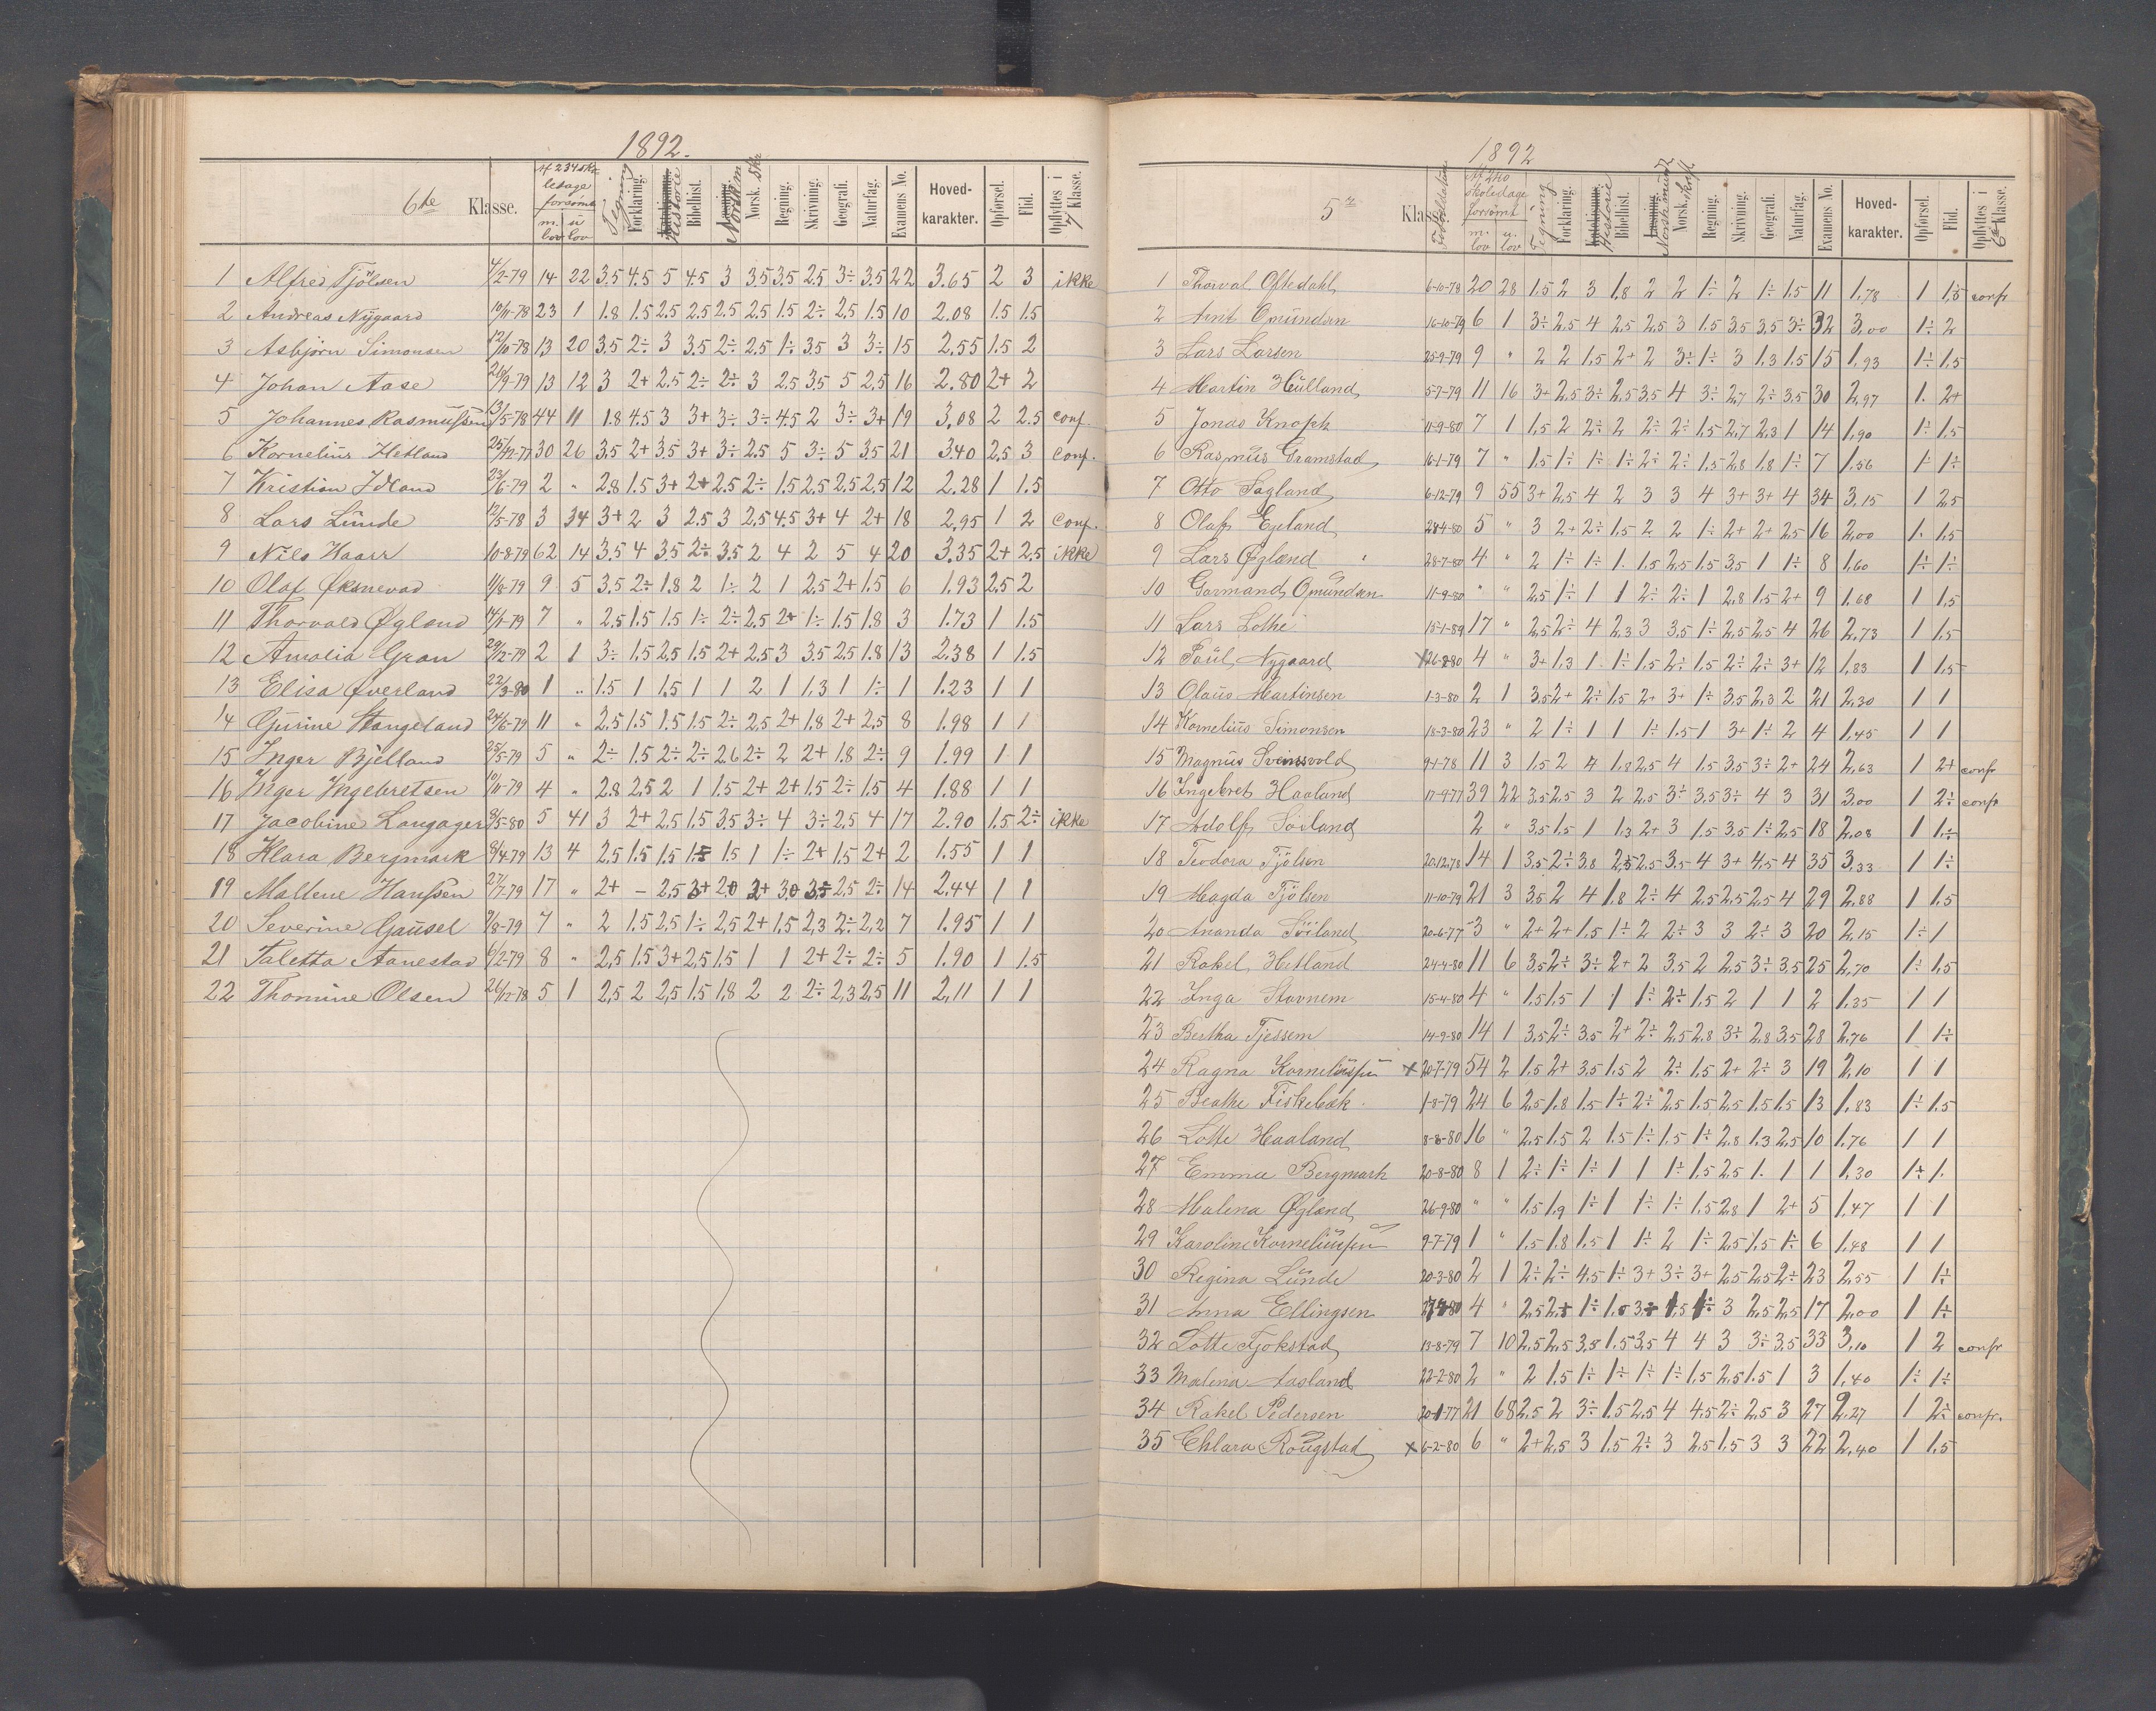 1892.
6te Klasse. Af 234 Sko- ledage forsömt m. lov u lov Tegning Forklaring. Historie Bibelhist. Norsk m Norsk. Skr Regning. Skrivning. Geografi. Naturfag. Examens No. Hoved- karakter. Opførsel. Flid. Opflyttes i 7 Klasse.
1 Alfred Tjölsen 4/2-79 14 22 3.5 4.5 5 4.5 3 3.5 3.5 2.5 3÷ 3.5 22 3.65 2 3 ikke
2 Andreas Nÿgaard 10/11-78 23 1 1.8 1.5 2.5 2.5 2.5 2.5 1.5 2÷ 2.5 1.5 10 2.08 1.5 1.5
3 Asbjörn Simonsen 12/10-78 13 20 3.5 2÷ 3 3.5 2÷ 2.5 1÷ 3.5 3 3÷ 15 2.55 1.5 2
4 Johan Aase 26/9-79 13 12 3 2+ 2.5 2÷ 2÷ 3 2.5 3.5 5 2.5 16 2.80 2+ 2
5 Johannes Rasmussen 13/5-78 44 11 1.8 4.5 3 3+ 3÷ 3÷ 4.5 2 3÷ 3+ 19 3,08 2 2.5 conf.
6 Kornelius Hetland 25/12-77 30 26 3.5 2+ 3.5 3+ 3÷ 2.5 5 3÷ 5 3.5 21 3.40 2.5 3 conf.
7 Kristian Idland 23/6-79 2 " 2.8 1.5 3+ 2+ 2.5 2÷ 1.5 2.5 2.5 2.5 12 2.28 1 1.5
8 Lars Lunde 12/5-78 3 34 3+ 2 3 2.5 3 2.5 4.5 3+ 4 2+ 18 2,95 1 2 conf.
9 Nils Haarr 10-8-79 62 14 3.5 4 3.5 2÷ 3.5 2 4 2 5 4 20 3.35 2+ 2.5 ikke
10 Olaf Øksnevad 1/8-79 9 5 3.5 2÷ 1.8 2 1÷ 2 1 2.5 2+ 1.5 6 1.93 2.5 2
11 Thorvald Øgland 14/2-79 7 " 2.5 1.5 1.5 1÷ 2÷ 2.5 2+ 1÷ 1.5 1.8 3 1.73 1 1.5
12 Amalia Gran 29/12-79 2 1 3÷ 1.5 2.5 1.5 2+ 2.5 3 3.5 2.5 1.8 13 2.38 1 1.5
13 Elisa Øverland 22/3-80 1 " 1.5 1 1.5 1 1 2 1 1,3 1 1÷ 1 1.23 1 1
14 Gurine Stangeland 24/6-79 11 " 2.5 1.5 1.5 1.5 2÷ 2.5 2+ 1.8 2+ 2.5 8 1.98 1 1
15 Inger Bjelland 25/5-79 5 " 2÷ 1.5 2÷ 2÷ 2.6 2÷ 2 2+ 1.8 2÷ 9 1.99 1 1
16 Inger Ingebretsen 10/10-79 4 " 2.8 2.5 2 1 1.5 2+ 2+ 1.5 2÷ 1.5 4 1.88 1 1
17 Jacobine Langager 8/5-80 5 41 3 2+ 2.5 1.5 3.5 3÷ 4 3÷ 2.5 4 17 2.90 1.5 2÷ ikke
18 Klara Bergmark 8/4-79 13 4 2.5 1.5 1.5 1.5 1.5 1 1÷ 2+ 1.5 2+ 2 1.55 1 1
19 Mallene Hanssen 27/7-79 17 " 2+ – 2.5 3+ 20 2+ 30 3÷ 2.5 2÷ 14 2.44 1 1
20 Severine Gausel 7/8-79 7 " 2 1.5 2.5 1÷ 2,5 2+ 1,5 2,3 2÷ 2,2 7 1.95 1 1
21 Taletta Aanestad 6/2-79 8 " 2,5 1.5 3+ 2,5 1.5 1 1 2+ 2÷ 2÷ 5 1.90 1 1.5
22 Thomine Olsen 26/12-78 5 1 2,5 2 2,5 1.5 1,8 2 2 2÷ 2,3 2,5 11 2,11 1 1
1892
5te Klasse Fødselsdatum Af 240 skoledage forsömt m. lov u. lov Tegning Forklaring. Historie Bibelhist. Norsk mundt Norsk. skrift. Regning. Skrivning. Geografi. Naturfag. Examens No. Hoved- karakter. Opførsel. Flid. Opflyttes i 6te Klasse.
1 Thorval Oftedahl 6-10-78 20 28 1.5 2 3 1,8 2 2 1÷ 2 1÷ 1.5 11 1,78 1 1,5 confr
2 Arnt Omundsen 16-10-79 6 1 3÷ 2,5 4 2,5 2,5 3 1.5 3,5 3,5 3÷ 32 3,00 1÷ 2
3 Lars Larsen 25-9-79 9 " 2 2 1.5 2+ 2 3÷ 1÷ 3 1.3 1.5 15 1,93 1÷ 1,5
4 Martin Hülland 5-7-79 11 16 3+ 2,5 3÷ 2,5 3,5 4 3÷ 2,7 2÷ 3,5 30 2,97 1. 2+
5 Jonas Knoph 11-9-80 7 1 1,5 2 2÷ 2 2÷ 2÷ 1,5 2,7 2,3 1 14 1,90 1÷ 1,5
6 Rasmus Gramstad 16-1-79 7 " 1.5 1÷ 1÷ 1÷ 2÷ 2÷ 1,5 2,8 1,8 1÷ 7 1,56 1÷ 1÷
7 Otto Sagland 6-12-79 9 55 3+ 2,5 4 2 3 3 4 3+ 3+ 4 34 3,15 1 2,5
8 Olaf Egeland 28-4-80 5 " 3 2+ 2÷ 1,5 2 2 1÷ 2+ 2+ 2,5 16 2,00 1. 1,5
9 Lars Øgland 28-7-80 4 " 2 1÷ 1÷ 1. 1,5 2,5 1,5 3,5 1 1÷ 8 1,60 1÷ 1÷
10 Garmand Omundsen 11-9-80 " " 2,5 1÷ 1 1 2÷ 2÷ 1 2,8 1,5 2+ 9 1,68 1 1,5
11 Lars Lothe 15-1-80 17 " 2,5 2÷ 4 2,3 3 3,5 1÷ 2,5 2,5 4 26 2,73 1 1,5
12 Paul Nygaard x 26-8-80 4 " 3+ 1,3 1 1÷ 1,5 2÷ 1,5 2÷ 2÷ 3+ 12 1,83 1 1,5
13 Olaus Martinsen 1-3-80 2 1 3,5 2+ 2÷ 1,5 2+ 3+ 1÷ 3,5 2,3 2 21 2,30 1 1
14 Kornelius Simonsen 18-3-80 23 " 2 1÷ 1 1 1÷ 1,5 1 3+ 1÷ 2 4 1,45 1 1
15 Magnus Svinsvold 9-1-78 11 3 1,5 2 4 1,8 2,5 4 1,5 3,5 3÷ 2+ 24 2,63 1 2+ confr
16 Ingebret Haaland 17-4-77 39 22 3,5 2,5 3 2 2,5 3÷ 3,5 3÷ 4 3 31 3,00 1 2÷ confr
17 Adolf Söiland 2 " 3,5 1,5 1 1,3 2+ 3 1,5 3,5 1÷ 2,5 18 2,08 1 1÷
18 Teodora Tjölsen 20.12.78 14 1 3,5 2÷ 3,8 2,5 2,5 3,5 4 3+ 4,5 4 35 3,33 1 1÷
19 Magda Tjölsen 11-10-79 21 3 3,5 2 4 1,8 2÷ 4 2,5 2,5 2,5 4 29 2,88 1 1,5
20 Ananda Söiland 20-6-77 3 " 2+ 2+ 1,5 1÷ 2 2÷ 3 3 2÷ 3 20 2,15 1÷ 1
21 Rakel Hetland 24-4-80 11 6 3,5 2÷ 3÷ 2+ 2 3,5 2 2,5 3÷ 3,5 25 2,70 1÷ 1,5
22 Inga Stavnem 15-4-80 4 " 1,5 1,5 1 1 1÷ 2÷ 1,5 2 1 1 2 1,35 1 1
23 Bertha Tjessem 14-9-80 14 1 3,5 2÷ 3,5 2+ 2÷ 2,5 2,8 3÷ 2,8 3,5 28 2,76 1 1÷
24 Ragna Korneliussen x 20-7-79 54 2 1,5 2+ 3,5 1,5 2 2÷ 1,5 2+ 2÷ 3 19 2,10 1 1
25 Beathe Fiskebæk 1-8-79 24 6 2,5 1,8 1,5 1÷ 2÷ 2,5 1,5 2,5 1,5 1,5 13 1,83 1÷ 1,5
26 Lotte Haaland 8-6-80 16 " 2,5 1,5 2 1,5 1÷ 1,5 1÷ 2,8 1,3 2,5 10 1,76 1 1
27 Emma Bergmark 20-8-80 8 1 2÷ 1÷ 1÷ 1 1 1÷ 1,5 2,5 1. 1 1 1,30 1÷ 1.
28 Malena Øgland 26-9-80 " " 1,5 1,9 1÷ 1 1÷ 1÷ 1,5 2,8 1 2+ 5 1,47 1 1
29 Karoline Korneliussen 9-7-79 1 " 1,5 1,8 1,5 1 1÷ 2 1÷ 2,5 1,5 1÷ 6 1,48 1 1
30 Regina Lunde 20-3-80 2 1 2÷ 2÷ 4,5 1÷ 3+ 3÷ 3+ 2,5 2,5 2÷ 23 2,55 1 1÷
31 Anna Ellingsen 4 " 2,5 2,5 1÷ 1,5 3+ 1,5 1÷ 3 2,5 2,5 17 2,00 1 1÷
32 Lotte Tjokstad 13-8-79 7 10 2,5 2,5 3,8 1,5 3,5 4 4 3 3÷ 3,5 33 3,10 1 2 confr
33 Malena Aasland 22-2-80 2 " 2 1,5 1÷ 1÷ 1÷ 1÷ 1,5 2,5 1,5 1 3 1,40 1÷ 1÷
34 Rakel Pedersen 20-1-77 21 68 2,5 2 3÷ 1,5 2,5 4 4,5 2÷ 2,5 3 27 2,27 1 2÷ confr.
35 Chlara Rougstad x 6-2-80 6 " 2+ 2,5 3 1,5 2÷ 3 2,5 1,5 3 3 22 2,40 1 1,5